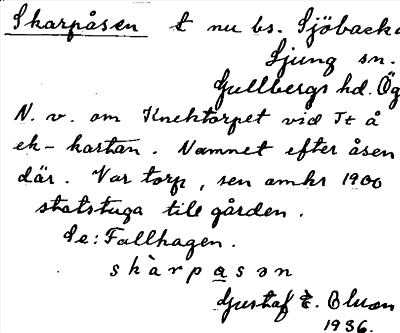 Skarpåsen t nu bs. Sjöbacka
Ljung sn.
Gullbergs hd. Ög
N. v. om Knektorpet vid Tt å
ek-kartan. Namnet efter åsen
där. Var torp, sen omkr 1900
statstuga till gården.
Se: Fallhagen.
skàrpasən
Gustaf E. Olsson
1936.